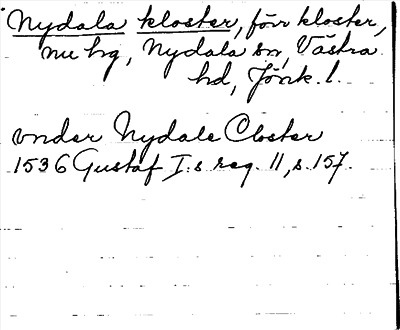 Nydala kloster, förr kloster,
nu hg, Nydala sn, Västra
hd, Jönk. l.
vnder Nydale Closter
1536 Gustaf I:s reg. 11, s. 157.